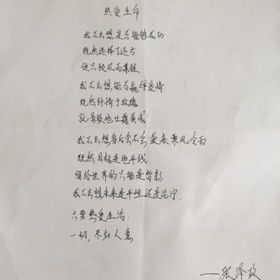 热爱生命
我不去想是否能够成功
既然选择了远方
便只顾风雨兼程
我不去想能否赢得爱情
既然钟情于玫瑰
就勇敢地吐露真诚
我不去想身后会不会袭来寒风冷雨
既然目标是地平线
留给世界的只能是背影
我不去想未来是平坦还是泥泞
只要热爱生活
一切,尽如人意